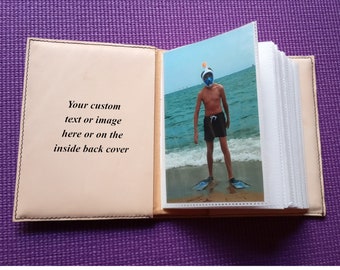 Your custom
text or image
here or on the
inside back cover